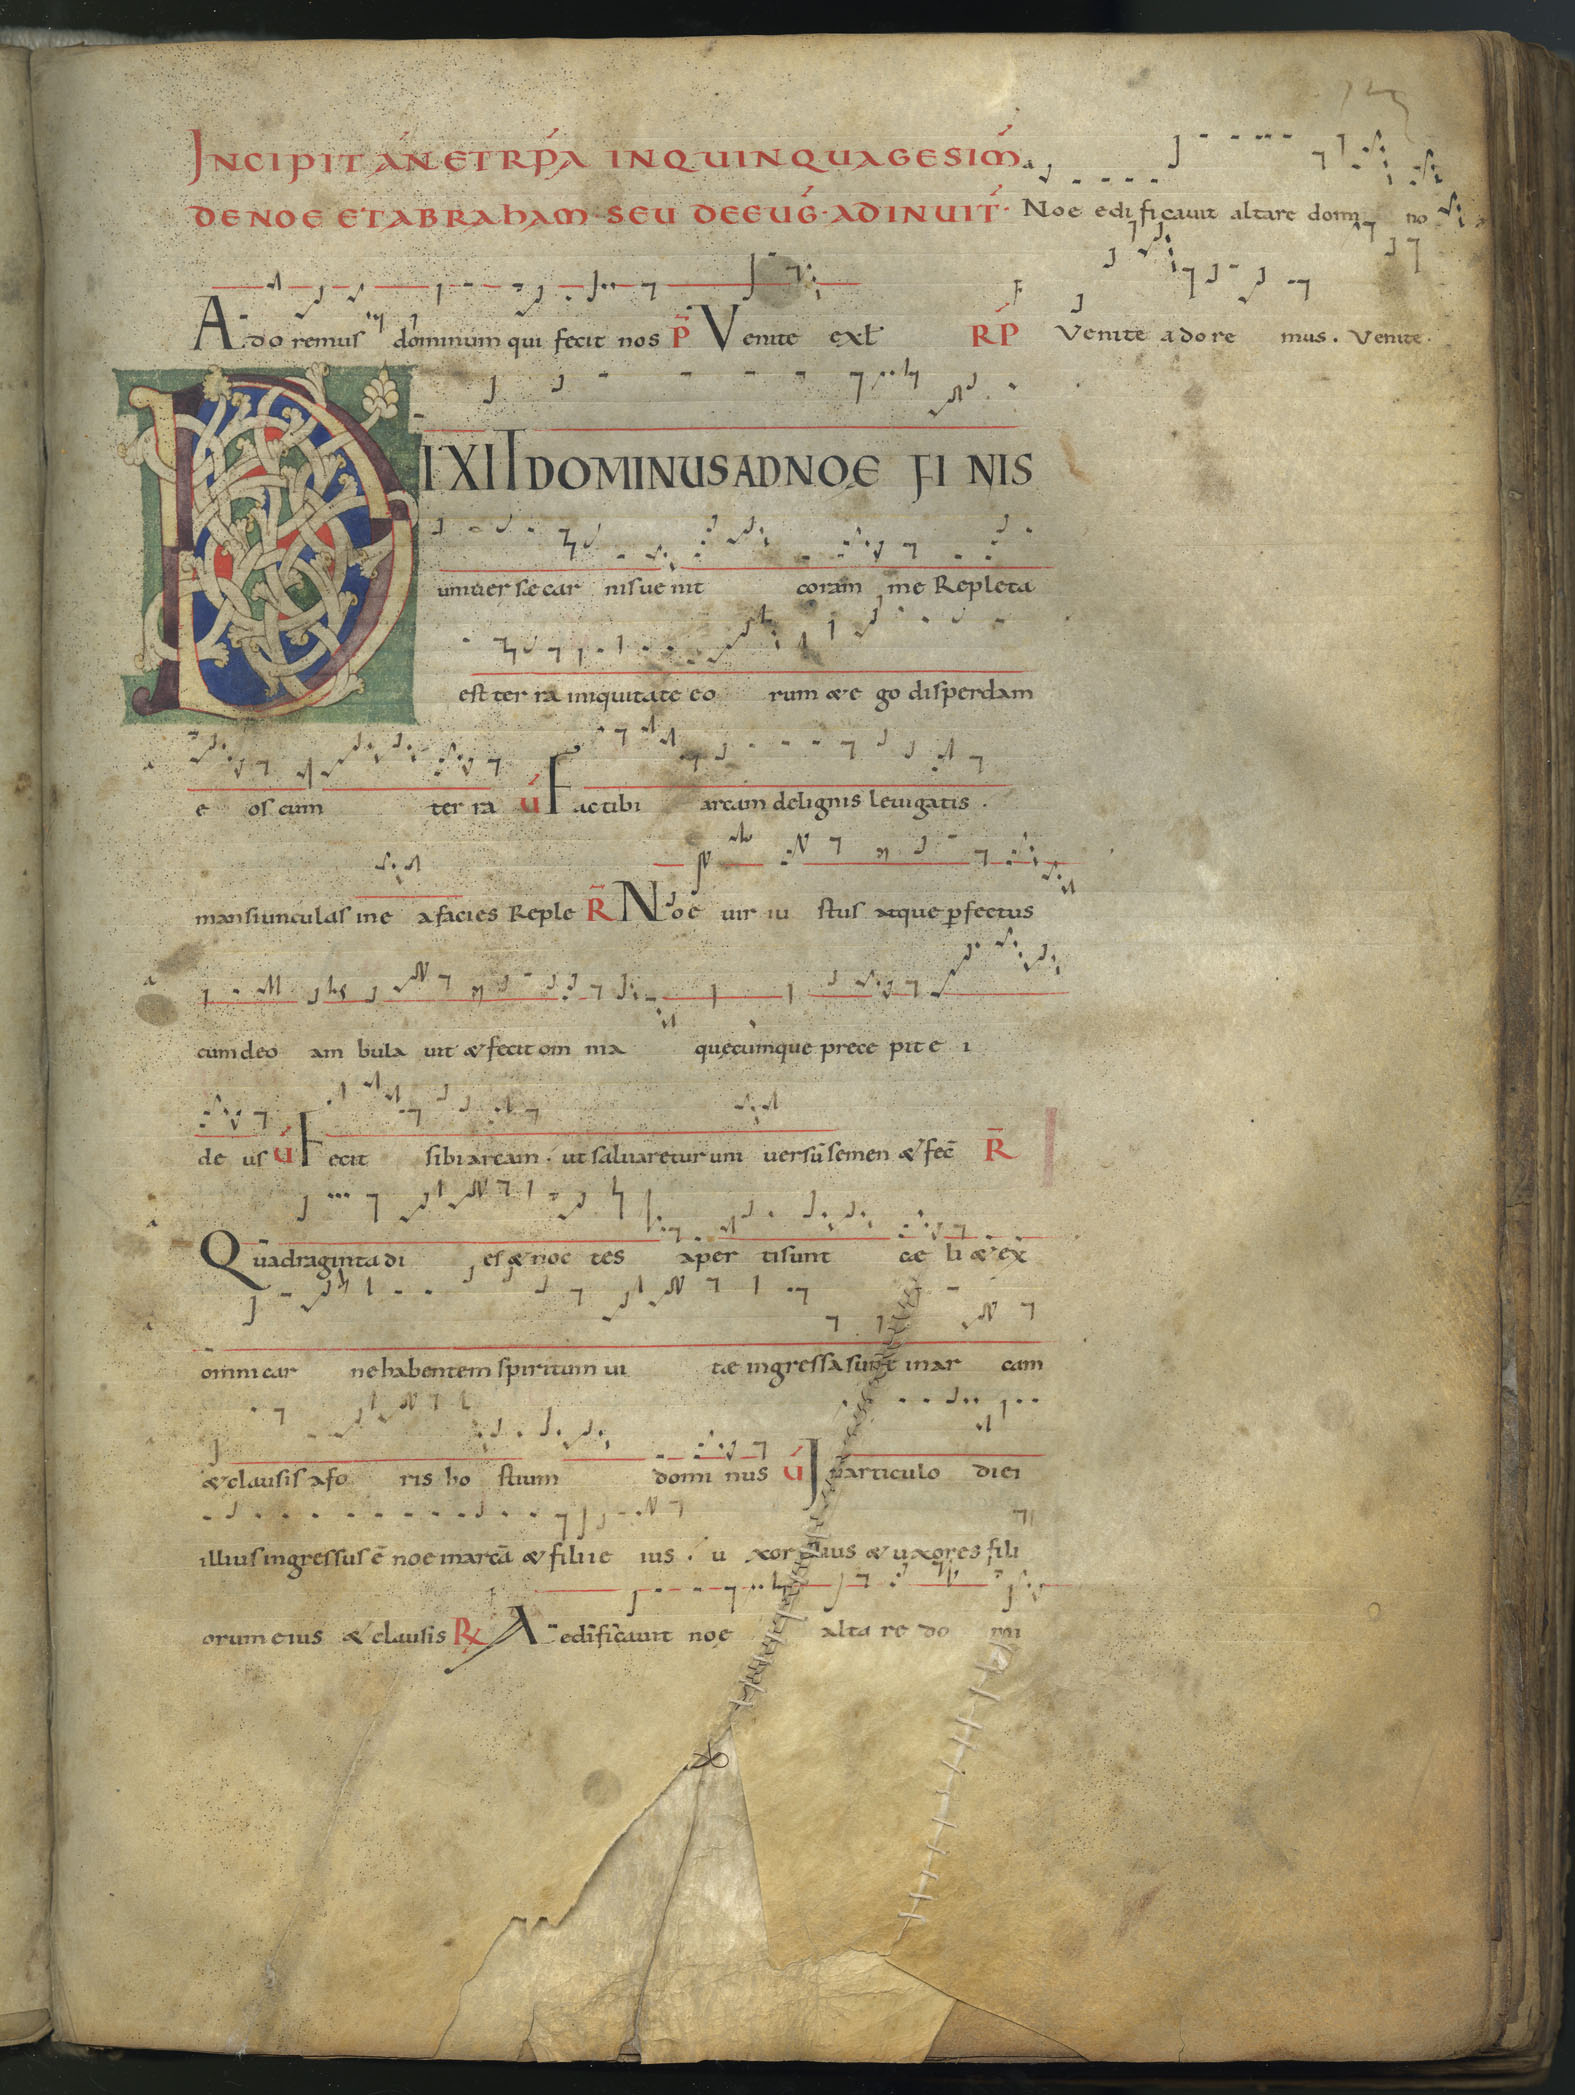 INCIPIT AN ET RPA IN QUINQUAGESIM
DE NOE ET ABRAHAM · SEU DE EUG · AD INUIT · Noe edificauit altare domi no
Adoremus dominum qui fecit nos P Venite exł RP Venite adore mus . Venite .
DIXIT DOMINUS AD NOE FI NIS
uniuersæ car nis ue nit coram me Repleta
est ter ra iniquitate eo rum & e go disperdam
e os cum ter ra U Fac tibi arcam delignis leuigatis .
mansiunculas in e a facies Reple R Noe uir iu stus atque ꝑfectus
cum deo am bula uit & fecit om nia quęcumque prece pit e i
de us U Fecit sibi arcam . ut saluaretur uni uersū semen & fec̄ R
Quadraginta di es & noc tes aper ti sunt cæ li & ex
omni car ne habentem spiritum ui tæ ingressa sunt in ar cam
& clausis a fo ris ho stium domi nus U In articulo diei
illius ingressus ē noe in arcā & filii e ius . u xor illius & uxores fili
orum eius & clausis R Aedificauit noe alta re do mi